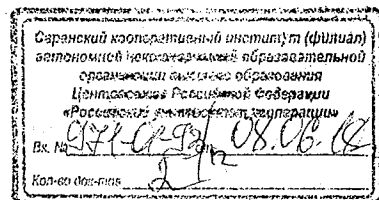 Саранский кооперативный институт (филиал)
автономной некоммерческой образовательной
организации высшего образования
Центросоюза Российской Федерации
«Российский университет кооперации»
Вх. № 08.06.
Кол-во